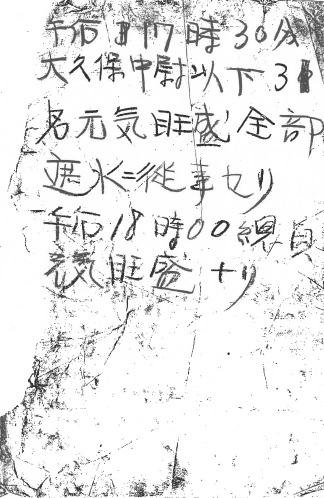 午后 17時30分
大久保中尉以下3
名元気旺盛全部
遮水ニ従事セリ
午后18時00総員
元気旺盛ナリ